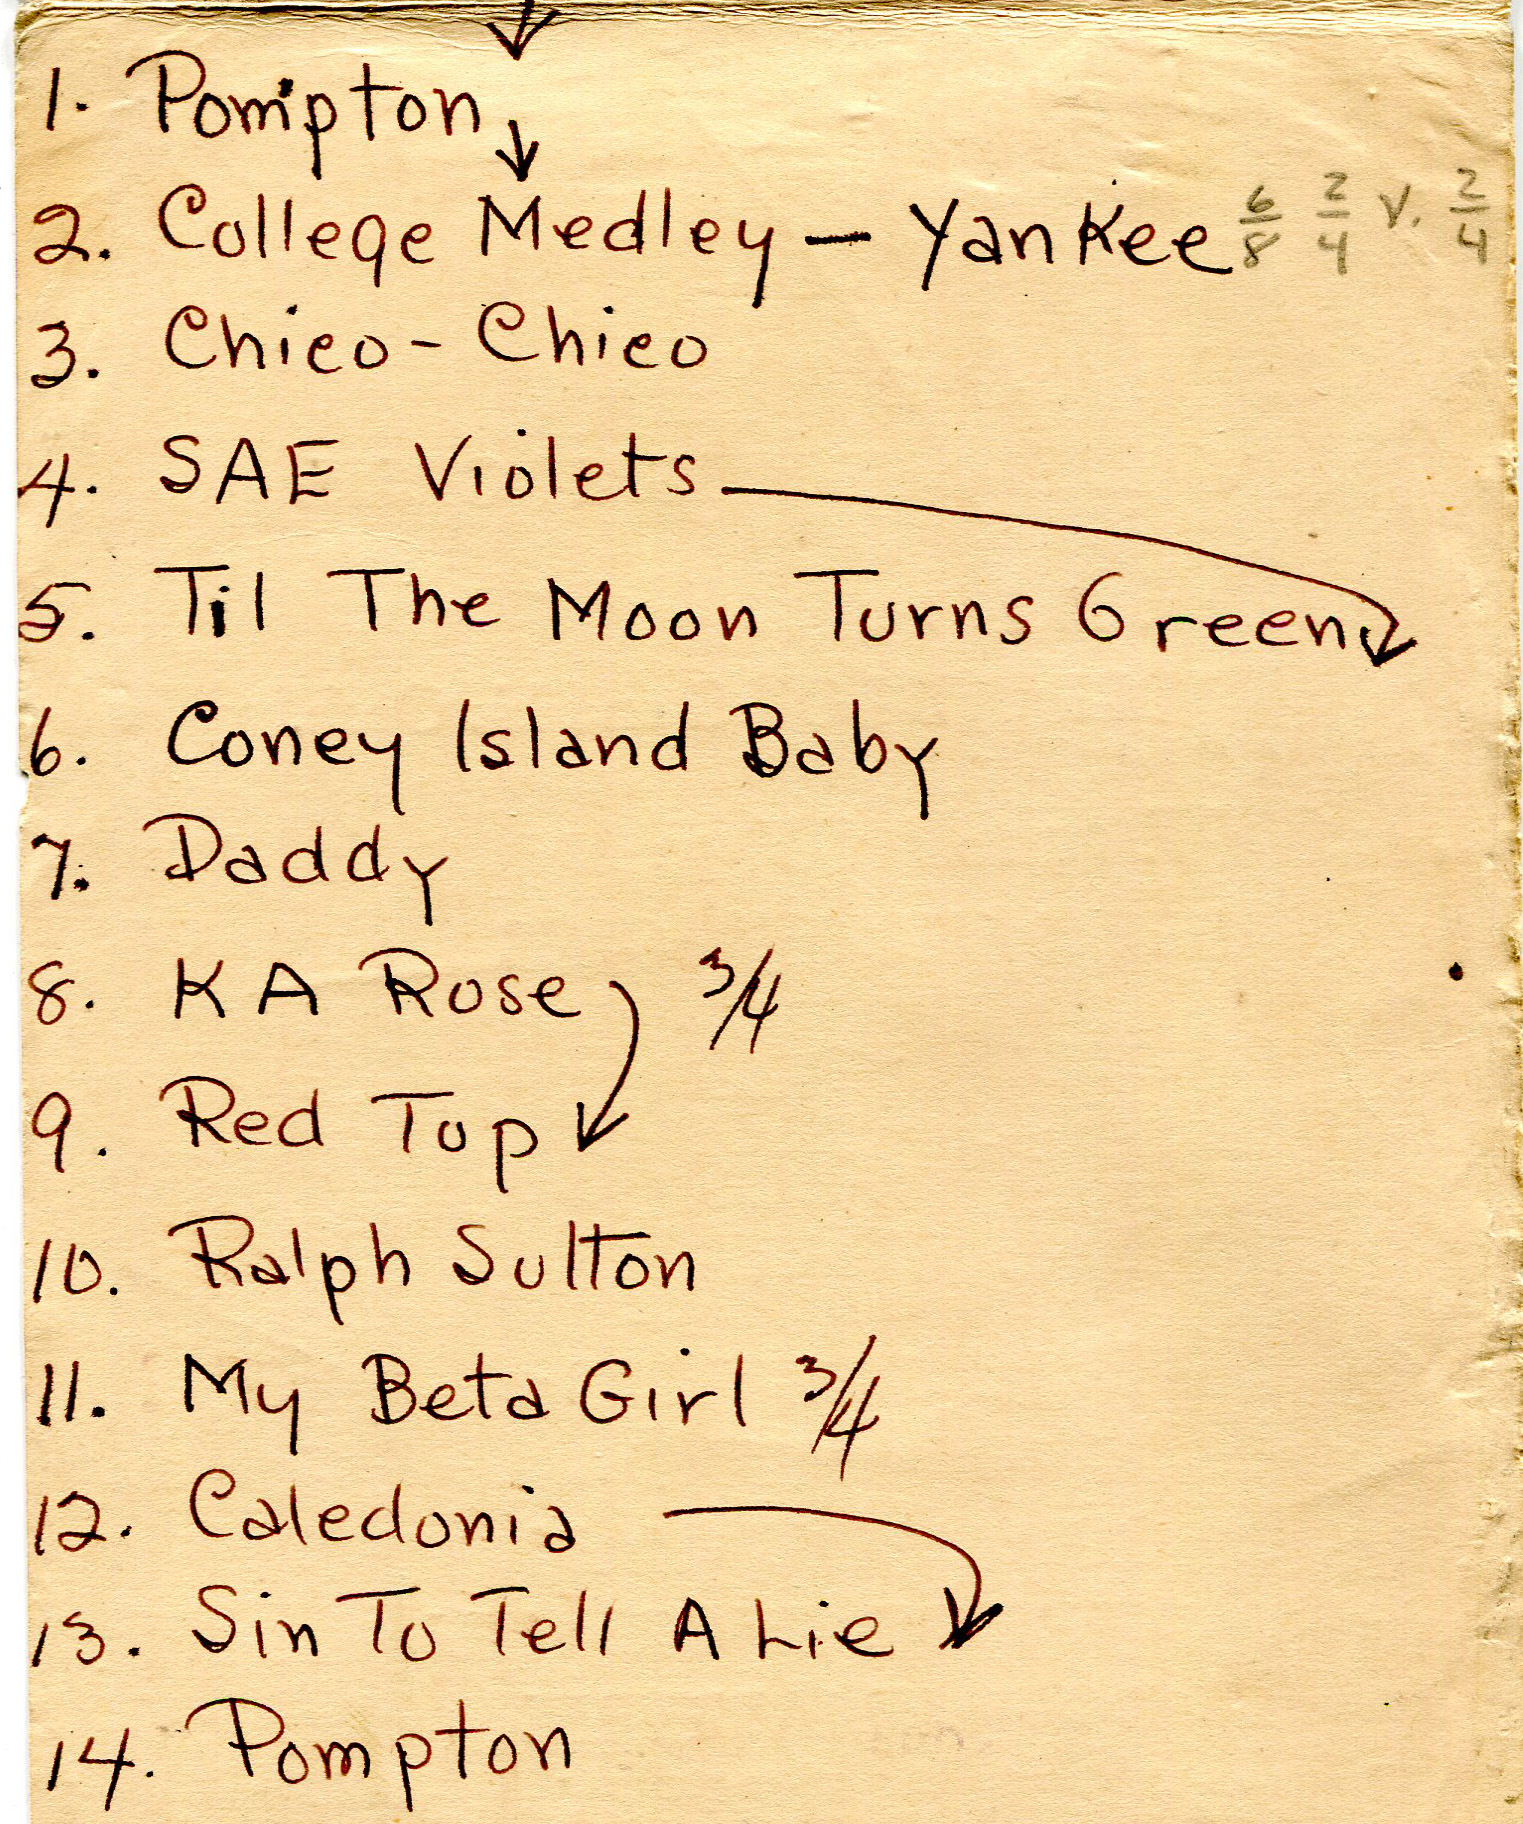 1. Pompton
2. College Medley — Yankee 6/8 2/4 V. 2/4
3. Chico - Chico
4. SAE Violets
5. Til The Moon Turns Green
6. Coney Island Baby
7. Daddy
8. KA Rose 3/4
9. Red Top
10. Ralph Sutton
11. My Beta Girl 3/4
12. Caledonia
13. Sin To Tell A Lie
14. Pompton